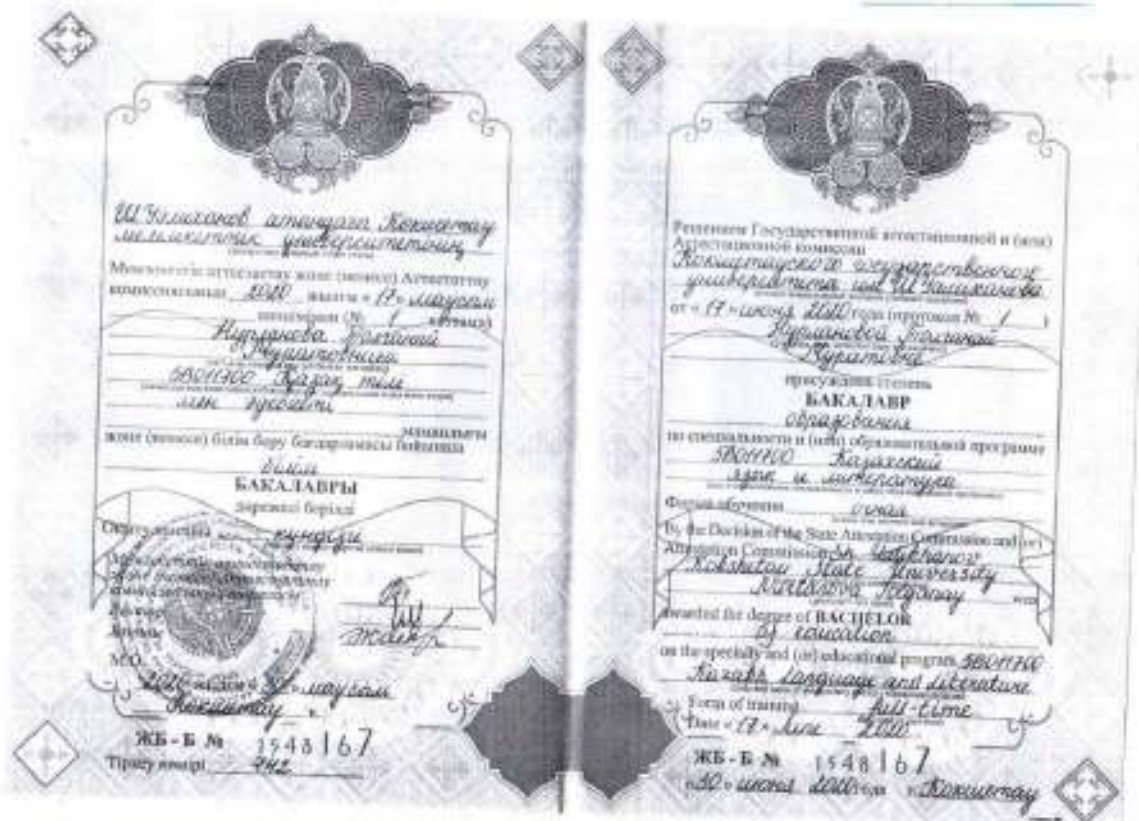 Ш Уәлиханов атындағы Көкшетау
мемлекеттік университетінің
Мемлекеттік аттестаттау және (немесе) Аттестаттау
комиссиясының 2020 жылғы «17» маусым
шешімімен (№ 1 хаттама)
Муратовнаға
5В011700 Қазақ тілі
мен әдебиеті
мамандығы
және (немесе) білім беру бағдарламасы бойынша
білім
БАКАЛАВРЫ
дәрежесі берілді
Оқыту нысаны күндізгі
М.О.
маусым
Көкшетау
ЖБ-Б № 1548167
Тіркеу нөмірі 742
Решением Государственной аттестационной и (или)
Аттестационной комиссии
Кокшетауского государственного
университета им Ш Уалиханова
от «17» июня 2020 года (протокол № 1)
присуждена степень
БАКАЛАВР
образования
по специальности и (или) образовательной программе
5В011700 Казахский
язык и литература
Форма обучения очная
By the Decision of the State Attestation Commission and (or)
Attestation Commission Sh. Ualikhanov
Kokshetau State University
was
awarded the degree of BACHELOR
of education
on the specialty and (or) educational program 5B011700
Kazakh language and literature
Form of training full-time
Date «17» 2020
ЖБ-Б № 1548167
«30» июня 2020 года г. Кокшетау